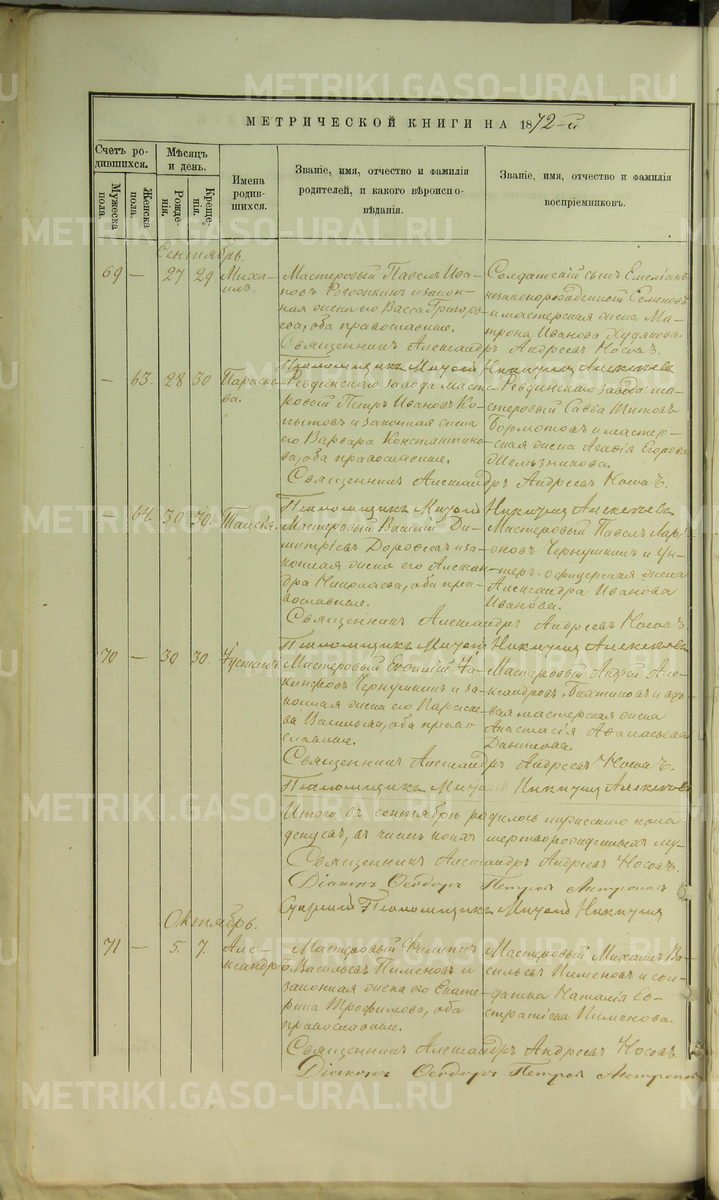 МЕТРИЧЕСКОЙ КНИГИ НА 1872-й
Счетъ ро-
дившихся.
Мужеска
пола.
Женска
пола.
Мѣсяцъ
и день.
Рожде-
нія.
Креще-
нія.
Имена
родив-
шихся.
Званіе, имя, отчество и фамилія
родителей, и какого вѣроиспо-
вѣданія.
Званіе, имя, отчество и фамилія
воспріемниковъ.
Сентябрь.
69 — 27 29 Миха-
илъ.
Мастеровый Павелъ Ива-
новъ и закон-
ная жена его Васса Григорь-
ева, оба православные.
Солдатскій сынъ Емеліанъ
незаконорожденный Семеновъ
и мастерская жена Ма-
трона Иванова Худякова.
Священникъ Александръ Андреевъ Носовъ.
Псаломщикъ Никулинъ Алексеевъ
— 63. 28 30 Параске-
ва.
Ревдинскаго завода масте-
ровый Петръ Ивановъ Ко-
пытовъ и законная жена
его Варвара Константино-
ва, оба православные.
Ревдинскаго завода ма-
стеровый Савва Титовъ
Бормотовъ и мастер-
ская жена Агафія Егорова
Мельзникова.
Священникъ Александръ Андреевъ Носовъ.
Псаломщикъ Никулинъ Алексеевъ
— 64. 30 30. Таисія.
Мастеровый Василій Ди-
митріевъ Дорофеевъ и за-
конная жена его Алексан-
дра Николаева, оба пра-
вославные.
Мастеровый Павелъ Лар-
оновъ Чернушкинъ и ун-
теръ-офицерская жена
Александра Иванова
Иванова.
Священникъ Александръ Андреевъ Носовъ.
Псаломщикъ Никулинъ Алексеевъ
70 — 30 30. Іустинъ.
Мастеровый Евфимій Іа-
кинфовъ Чернушкинъ и за-
конная жена его Параске-
ва Васильева, оба право-
славные.
Мастеровый Андрей Але-
ксандровъ и вдо-
вая мастерская жена
Анастасія Афанасьева
Данилова.
Священникъ Александръ Андреевъ Носовъ.
Псаломщикъ Никулинъ Алексеевъ
Итого въ сентябрѣ родилось мужеска пола
въ числѣ коихъ мертворожденныхъ
Священникъ Александръ Андреевъ Носовъ.
Діаконъ Ѳеодоръ Петровъ
Псаломщикъ Никулинъ
Октябрь.
71 — 5. 7. Але-
ксандръ.
Мастеровый Филиппъ
Васильевъ Пименовъ и
законная жена его Екате-
рина Трофимова, оба
православные.
Мастеровый Михаилъ Ва-
сильевъ Пименовъ и сол-
датка Наталія Ев-
стратіева Пименова.
Священникъ Александръ Андреевъ Носовъ.
Діаконъ Ѳеодоръ Петровъ
METRIKI.GASO-URAL.RU
METRIKI.GASO-URAL.RU
METRIKI.GASO-URAL.RU
METRIKI.GASO-URAL.RU
METRIKI.GASO-URAL.RU
METRIKI.GASO-URAL.RU
METRIKI.GASO-URAL.RU
METRIKI.GASO-URAL.RU